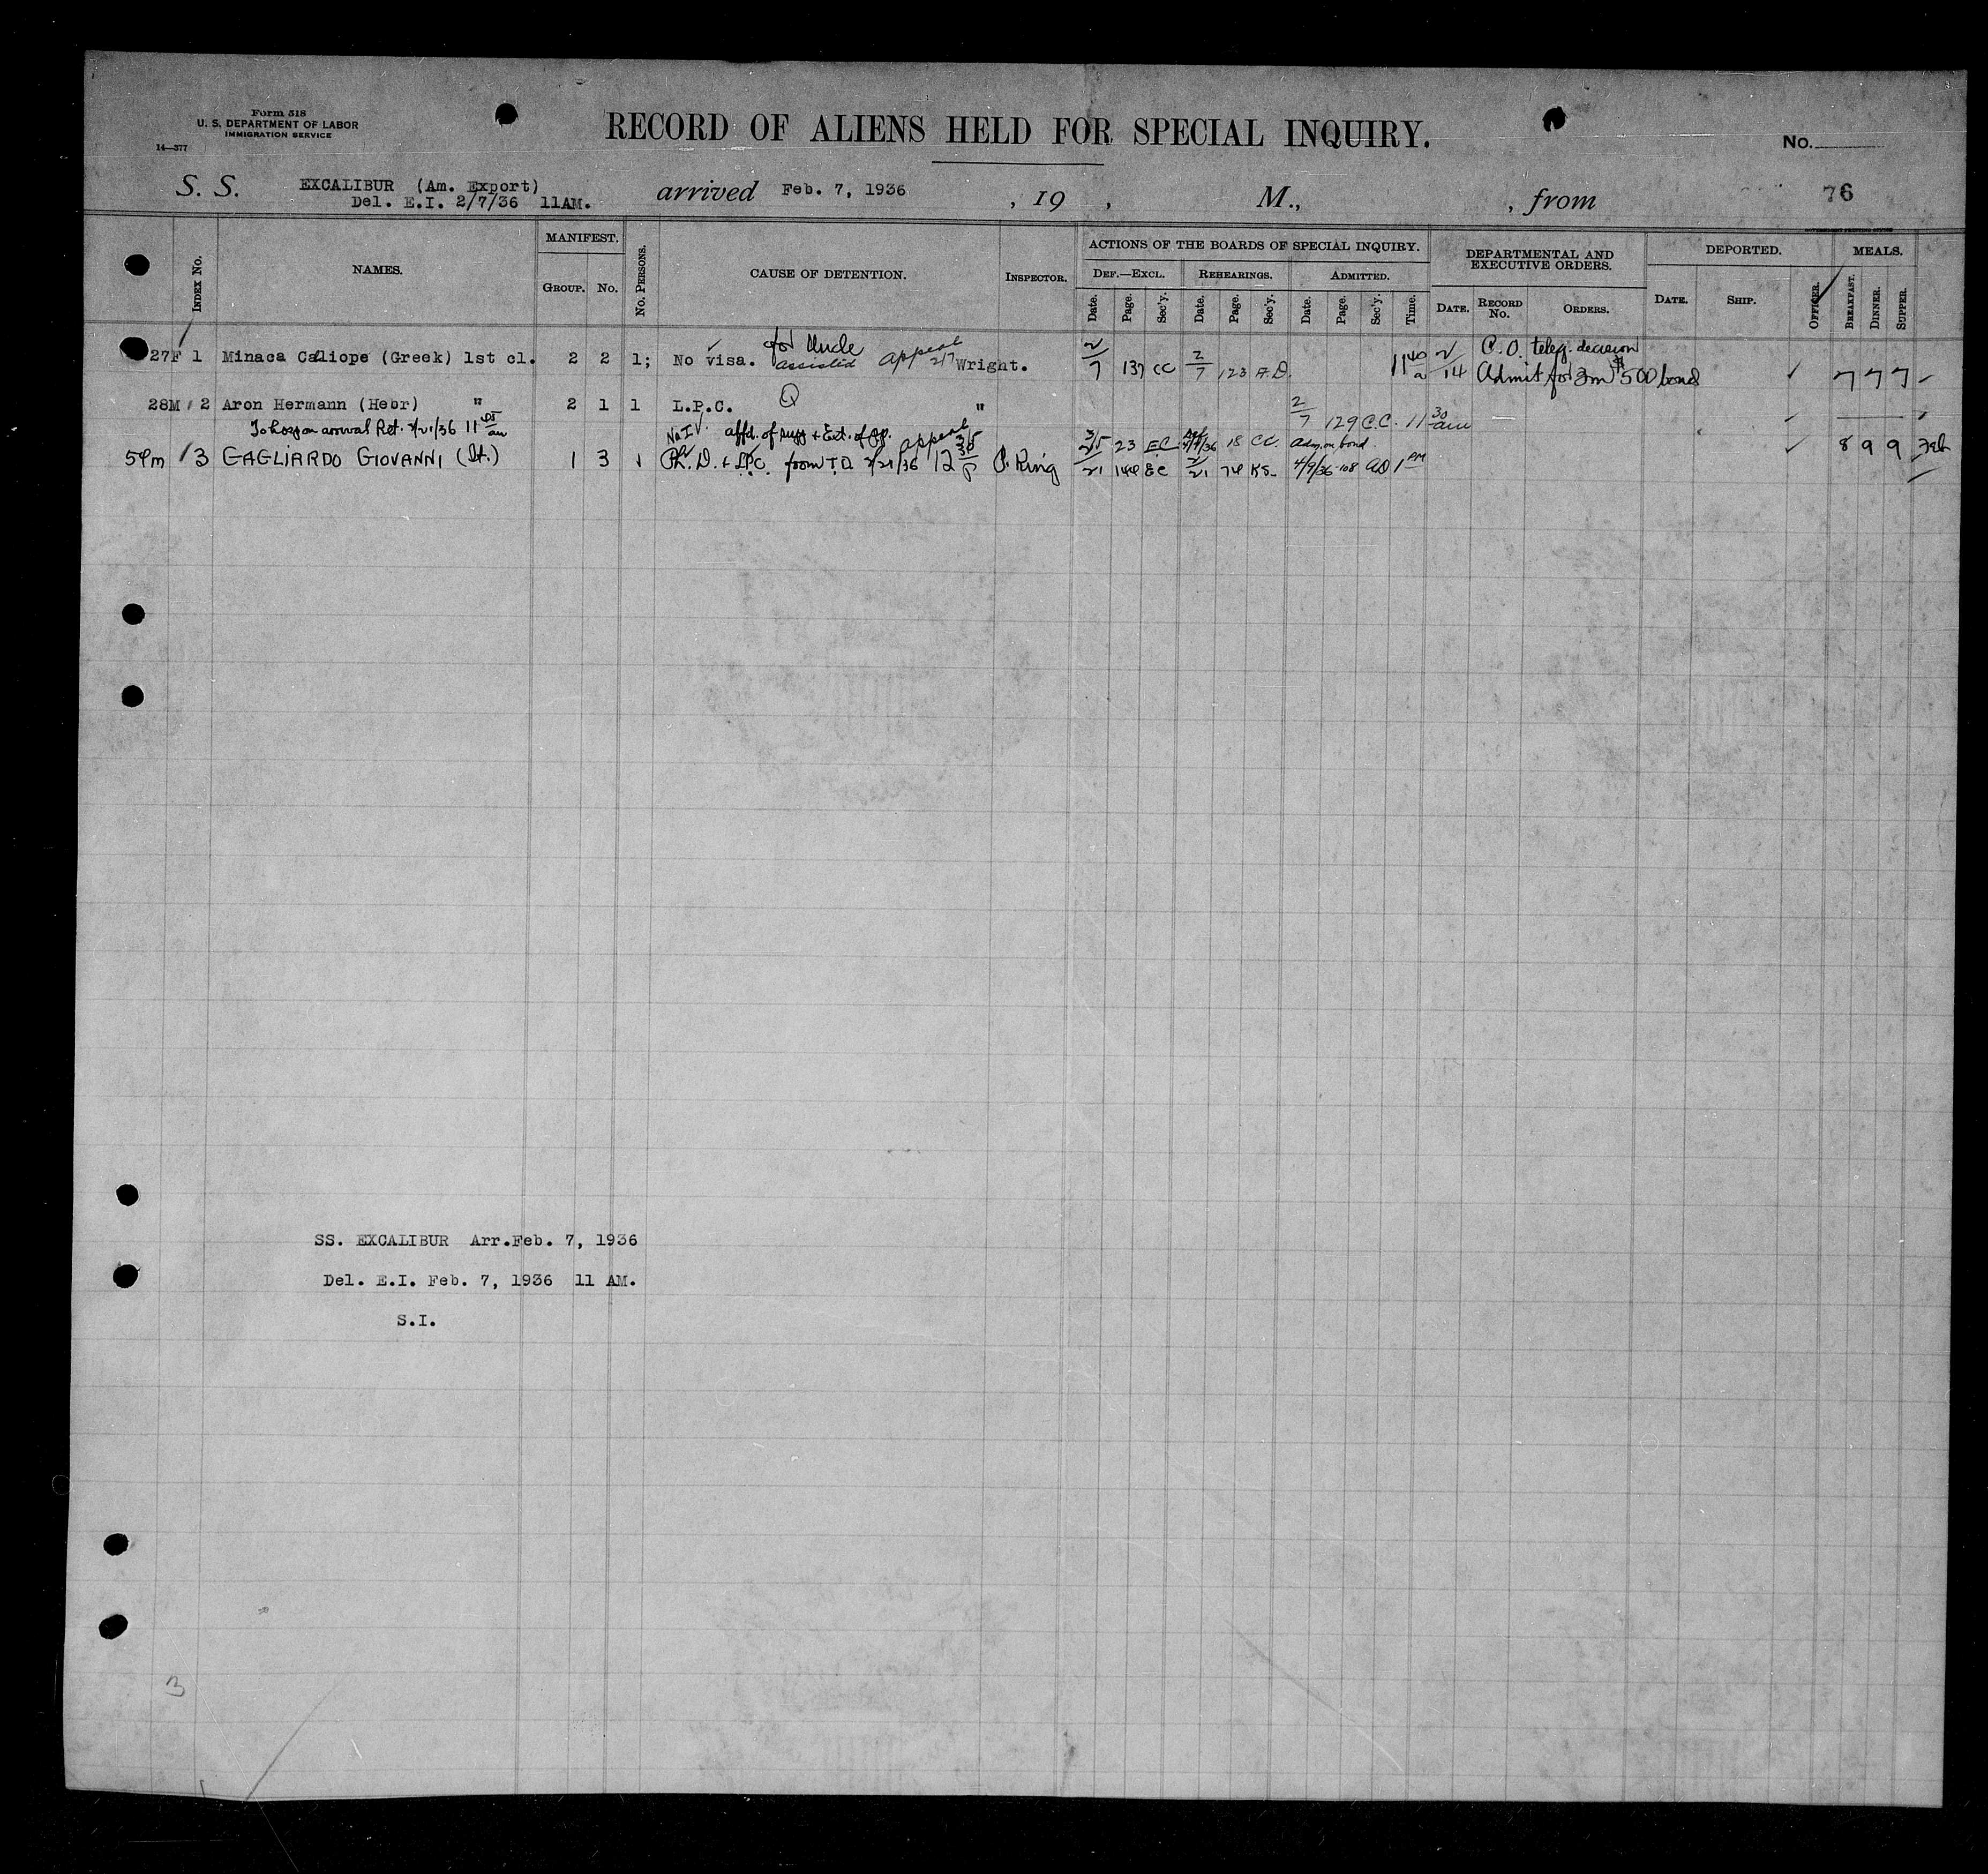 Form 518
U. S. DEPARTMENT OF LABOR
IMMIGRATION SERVICE
14—377
RECORD OF ALIENS HELD FOR SPECIAL INQUIRY.
No.
S. S. EXCALIBUR (Am. Export) arrived Feb. 7, 1936 , 19 , M., , from 76
Del. E.I. 2/7/36 11AM.
INDEX NO. NAMES. MANIFEST. GROUP. NO. NO. PERSONS. CAUSE OF DETENTION. INSPECTOR. ACTIONS OF THE BOARDS OF SPECIAL INQUIRY. DEPARTMENTAL AND EXECUTIVE ORDERS. DEPORTED. MEALS.
DEF.—EXCL. REHEARINGS. ADMITTED.
Date. Page. Sec'y. Date. Page. Sec'y. Date. Page. Sec'y. Time. DATE. RECORD NO. ORDERS. DATE. SHIP. OFFICER. BREAKFAST. DINNER. SUPPER.
for Uncle C.O. teleg. decision
27F 1 Minaca Caliope (Greek) 1st cl. 2 2 1; No visa. assisted appeal 2/7 Wright. 2/7 137 CC 2/7 123 A.D. 11 40 a 2/14 Admit for 3m $500 bond 7 7 7
28M 2 Aron Hermann (Hebr) " 2 1 1 L.P.C. Q " 2/7 129 C.C. 11 30 am
To Hosp on arrival Ret. 2/21/36 11 am No I.V. affd. of supp + Ext. of pp. appeal 3/5 23 EC 18 CC. adm. on bond
5 PM 3 GAGLIARDO GIOVANNI (It.) 1 3 1 Ph. D. + L.P.C. from T.D. 2/21/36 12 P. King 2/21 144 EC 2/21 74 KS 4/9/36 108 AD 1 PM 8 9 9 Feb
SS. EXCALIBUR Arr.Feb. 7, 1936
Del. E.I. Feb. 7, 1936 11 AM.
S.I.
3